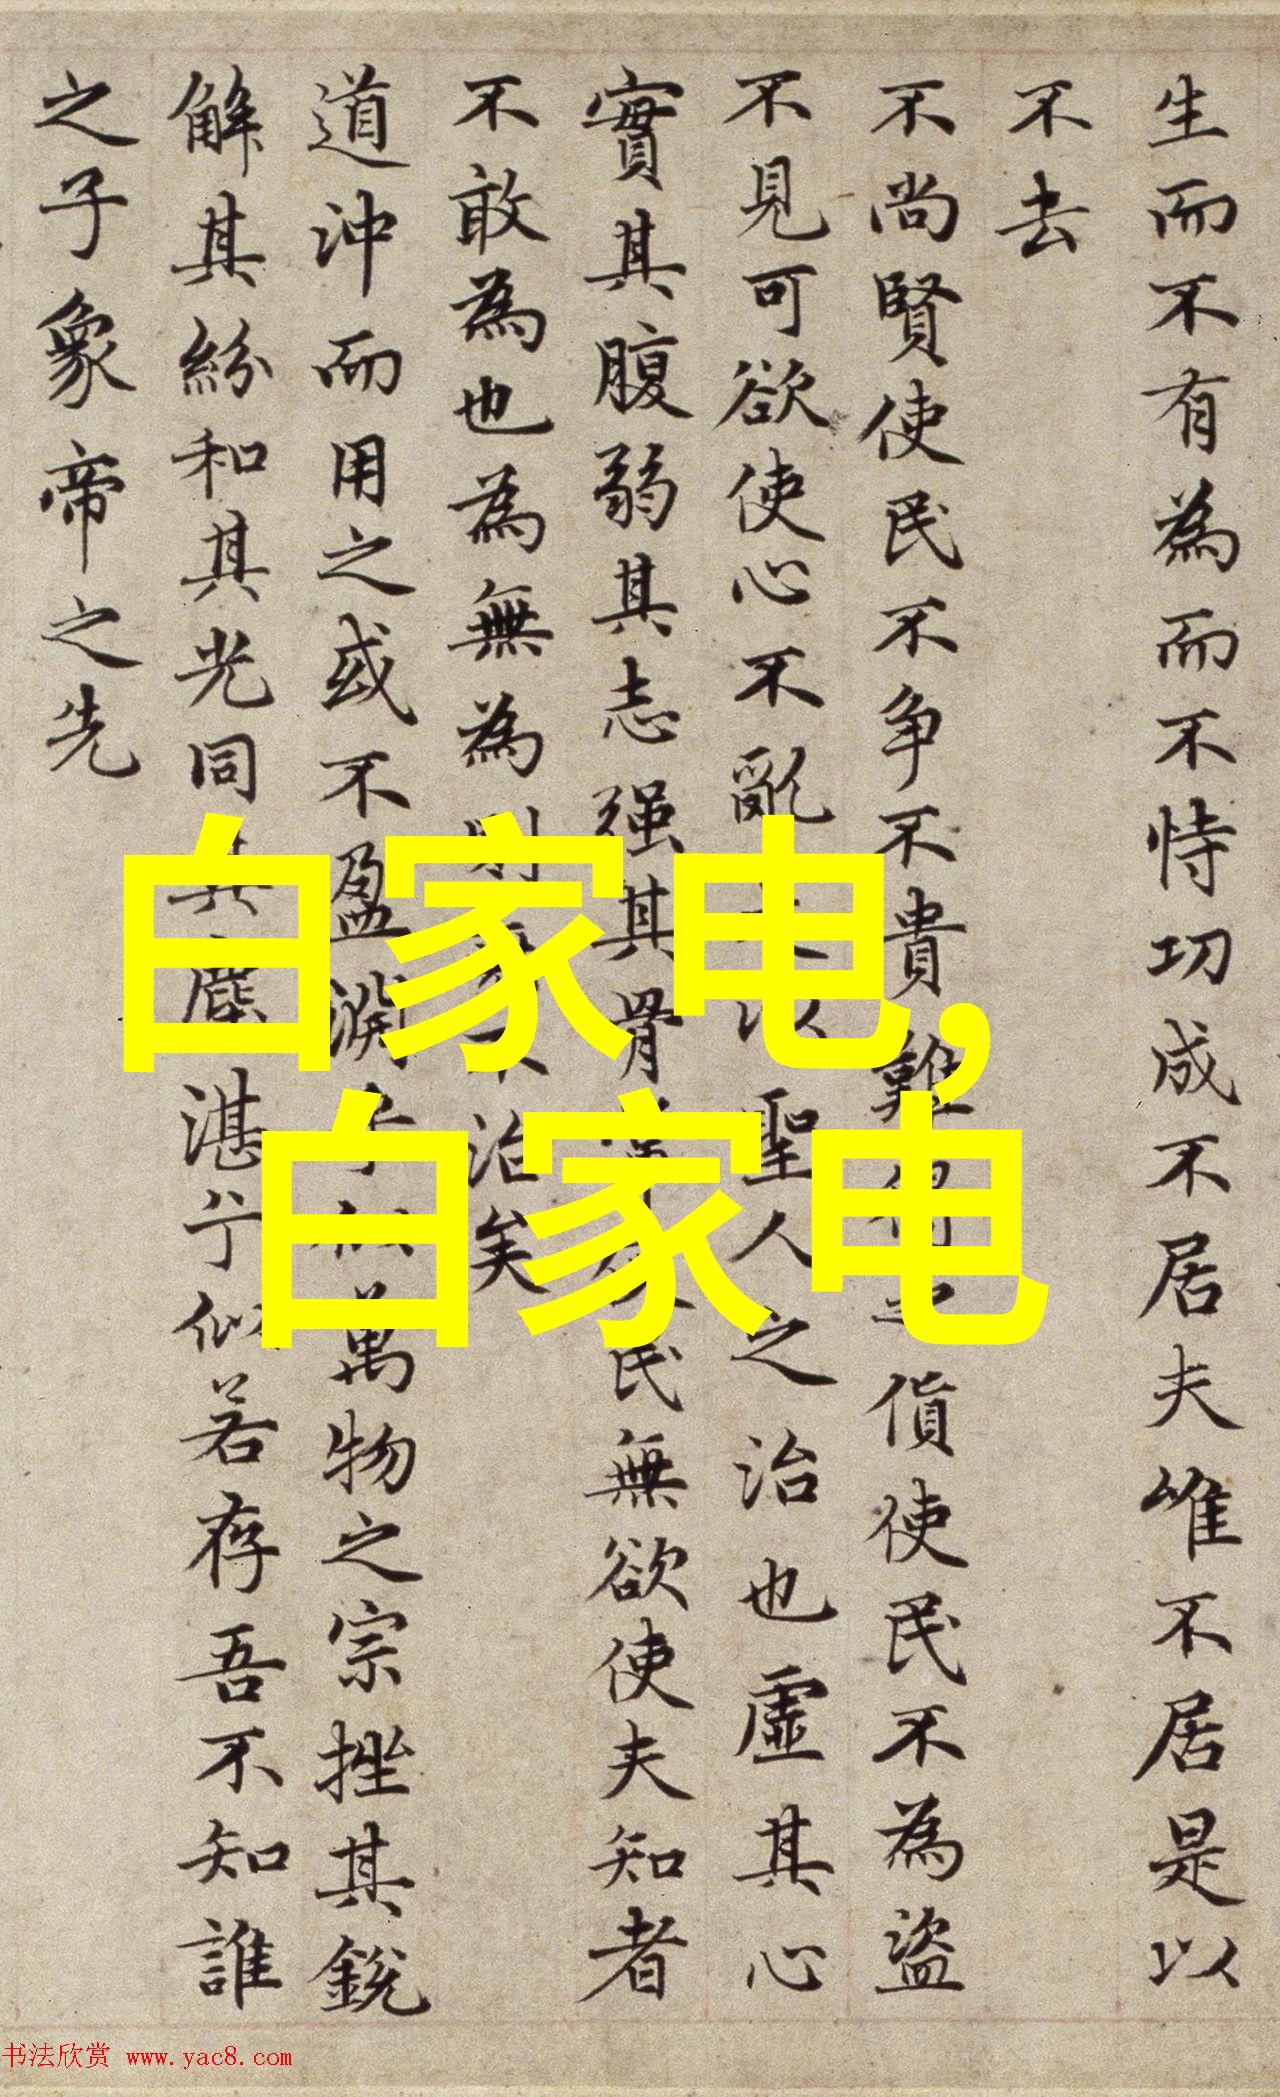 生而不有為而不恃功成不居夫唯不居是以
不去
不尚賢使民不争不貴難得之貨使民不為盜
不見可欲使心不亂是以聖人之治也虛其心
實其腹弱其志强其骨常使民無欲使夫知者
不敢為也為無為則無不治矣
道沖而用之或不盈淵乎似萬物之宗挫其銳
解其紛和其光同其塵湛兮似若存吾不知誰
之子象帝之先
白家电,
白家电
书法欣赏 www.yac8.com